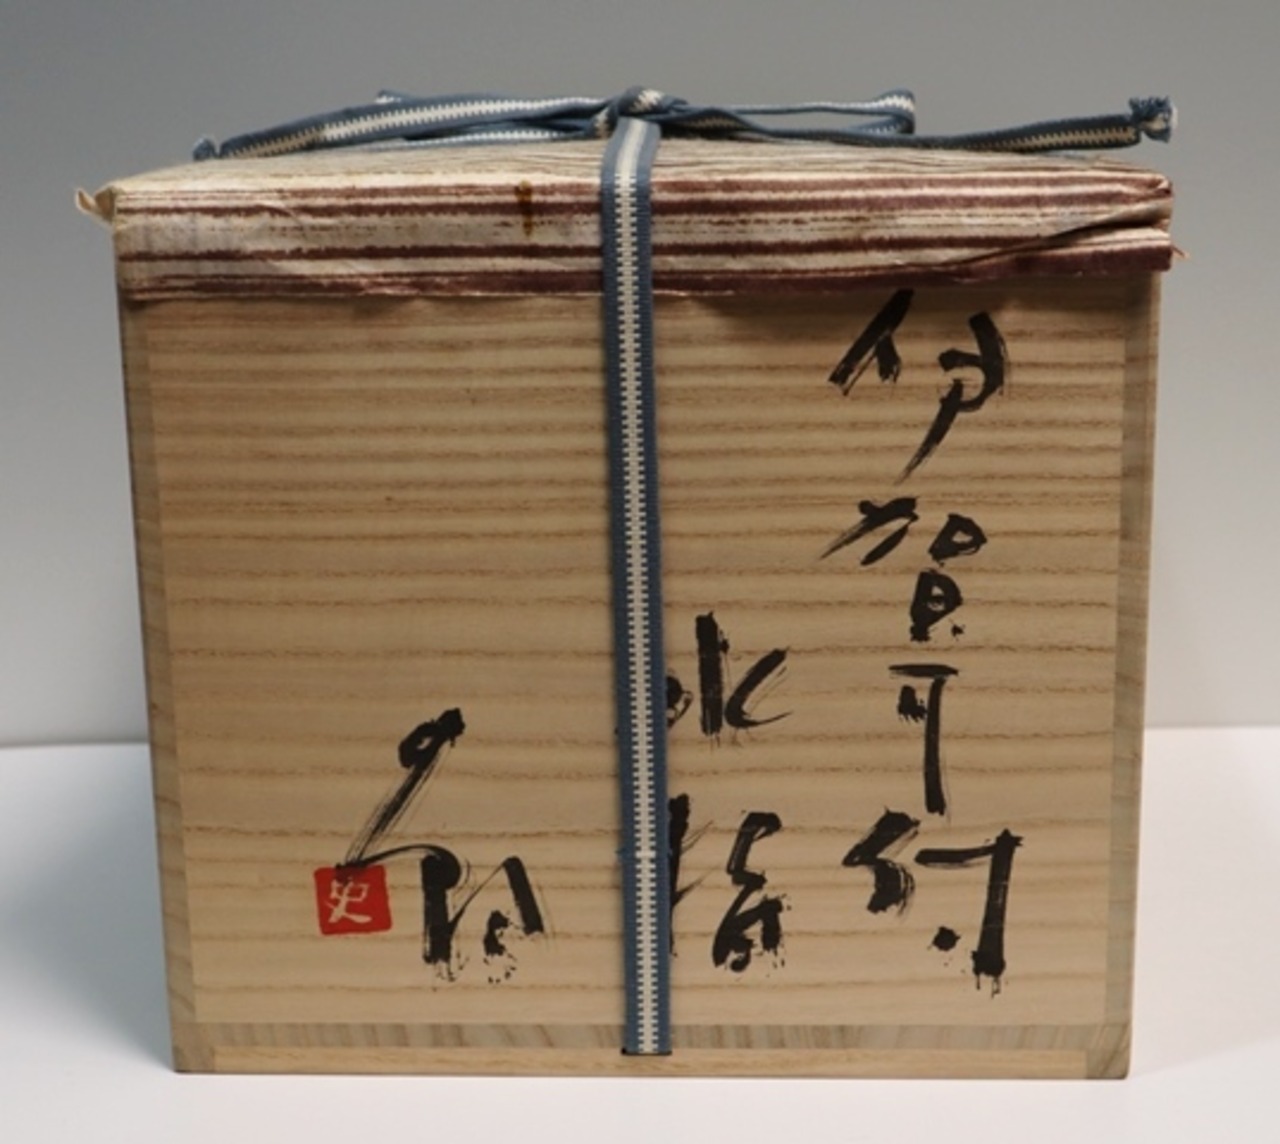 伊賀耳付
水指
史